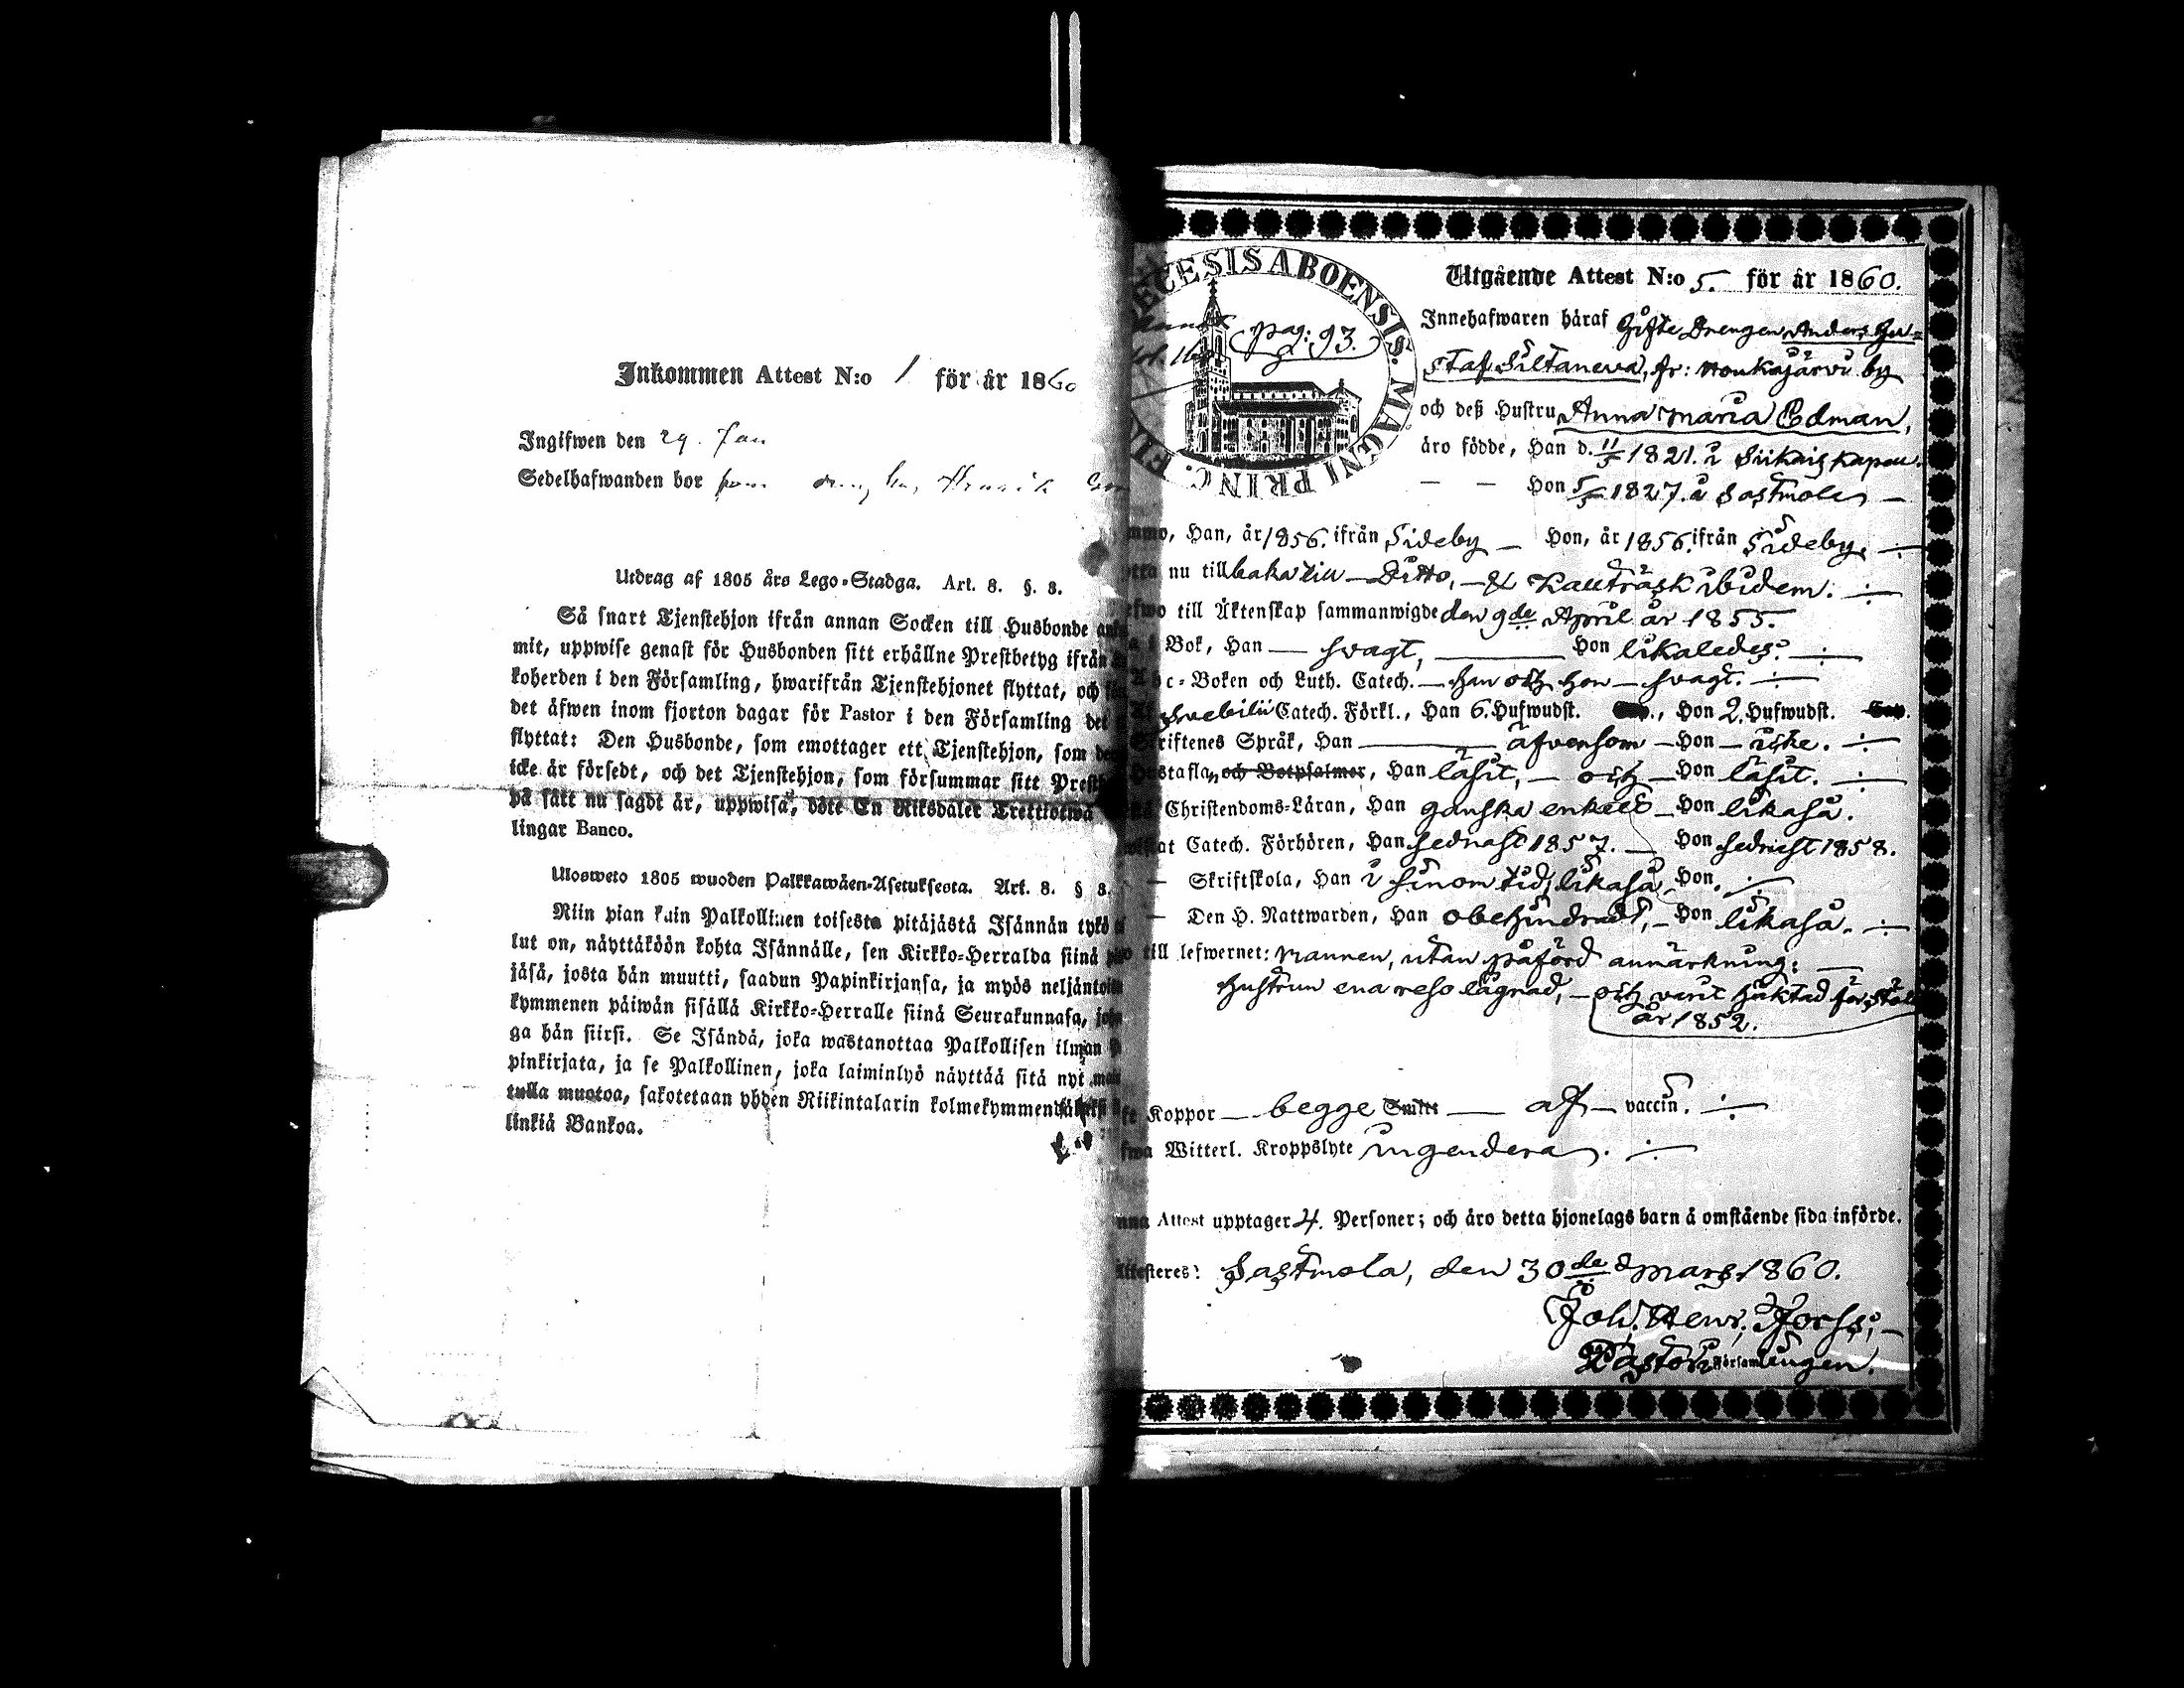 Inkommen Attest N:o 1 för år 1860
Ingifwen den 29. Jan
Sedelhafwanden bor Henrik
Utdrag af 1805 års Lego-Stadga. Art. 8. §. 8.
Så snart Tjenstehjon ifrån annan Socken till Husbonde
mit, uppwise genast för Husbonden sitt erhållne Prestbetyg ifrån
koherden i den Församling, hwarifrån Tjenstehjonet flyttat, och
det äfwen inom fjorton dagar för Pastor i den Församling det
flyttat: Den Husbonde, som emottager ett Tjenstehjon, som
icke är försedt, och det Tjenstehjon, som försummar sitt
på sätt nu sagdt är, uppwisa, böte En Riksdaler Trettiotwå
lingar Banco.
Ulosweto 1805 wuoden Palkkawäen-Asetuksesta. Art. 8. § 8.
Niin pian kuin Palkollinen toisesta pitäjästä Isännän tykö
lut on, näyttäköön kohta Isännälle, sen Kirkko-Herralda siinä
jäsä, josta hän muutti, saadun Papinkirjansa, ja myös neljäntoista
kymmenen päiwän sisällä Kirkko-Herralle siinä Seurakunnasa,
ga hän siirsi. Se Isändä, joka wastanottaa Palkollisen ilman
pinkirjata, ja se Palkollinen, joka laiminlyö näyttää sitä nyt
tulla muotoa, sakotetaan yhden Riikintalarin kolmekymmendäkaksi
linkiä Bankoa.
ECESIS ABOENSIS. MAGNI PRINC. FI
pag: 93.
Utgående Attest N:o 5. för år 1860.
Innehafwaren häraf Gifte Drengen Anders Gu=
staf Siltaneva, fr: Houkajärvi by
och deß Hustru Anna Maria Edman,
äro födde, Han d. 11/5 1821. i Siikais kapell.
— — Hon 5/5 1827. i Sastmola —
Han, år 1856. ifrån Sideby — Hon, år 1856. ifrån Sideby.
nu tillbaka till — Ditto, — & Kallträsk ibidem.
till Äktenskap sammanwigde den 9de April år 1855.
i Bok, Han — svagt, — Hon likaledes.
Abc-Boken och Luth. Catech. — Han och Hon — svagt.
Svebilii Catech. Förkl., Han 6. Hufwudst. Hon 2. Hufwudst.
Skriftenes Språk, Han — äfvensom — Hon — icke.
Hustafla, och Botpsalmer, Han läsit, — och — Hon läsit.
Christendoms-Läran, Han ganska enkelt — Hon likaså.
Catech. Förhören, Han sednast 1857. — Hon sednast 1858.
— Skriftskola, Han i sinom tid, likaså Hon.
— Den H. Nattwarden, Han obehindradt, — Hon likaså.
till lefwernet: Mannen, utan påförd anmärkning;
Hustrun ena reso lägrad, — och varit häktad för stöld
år 1852.
Koppor — begge Smitt — af — vaccin.
Witterl. Kroppslyte ingendera.
Attest upptager 4. Personer; och äro detta hjonelags barn å omstående sida införde.
Attesteres: Sastmola, den 30de Mars 1860.
Joh. Henr. Forss,
Pastor i Församlingen.